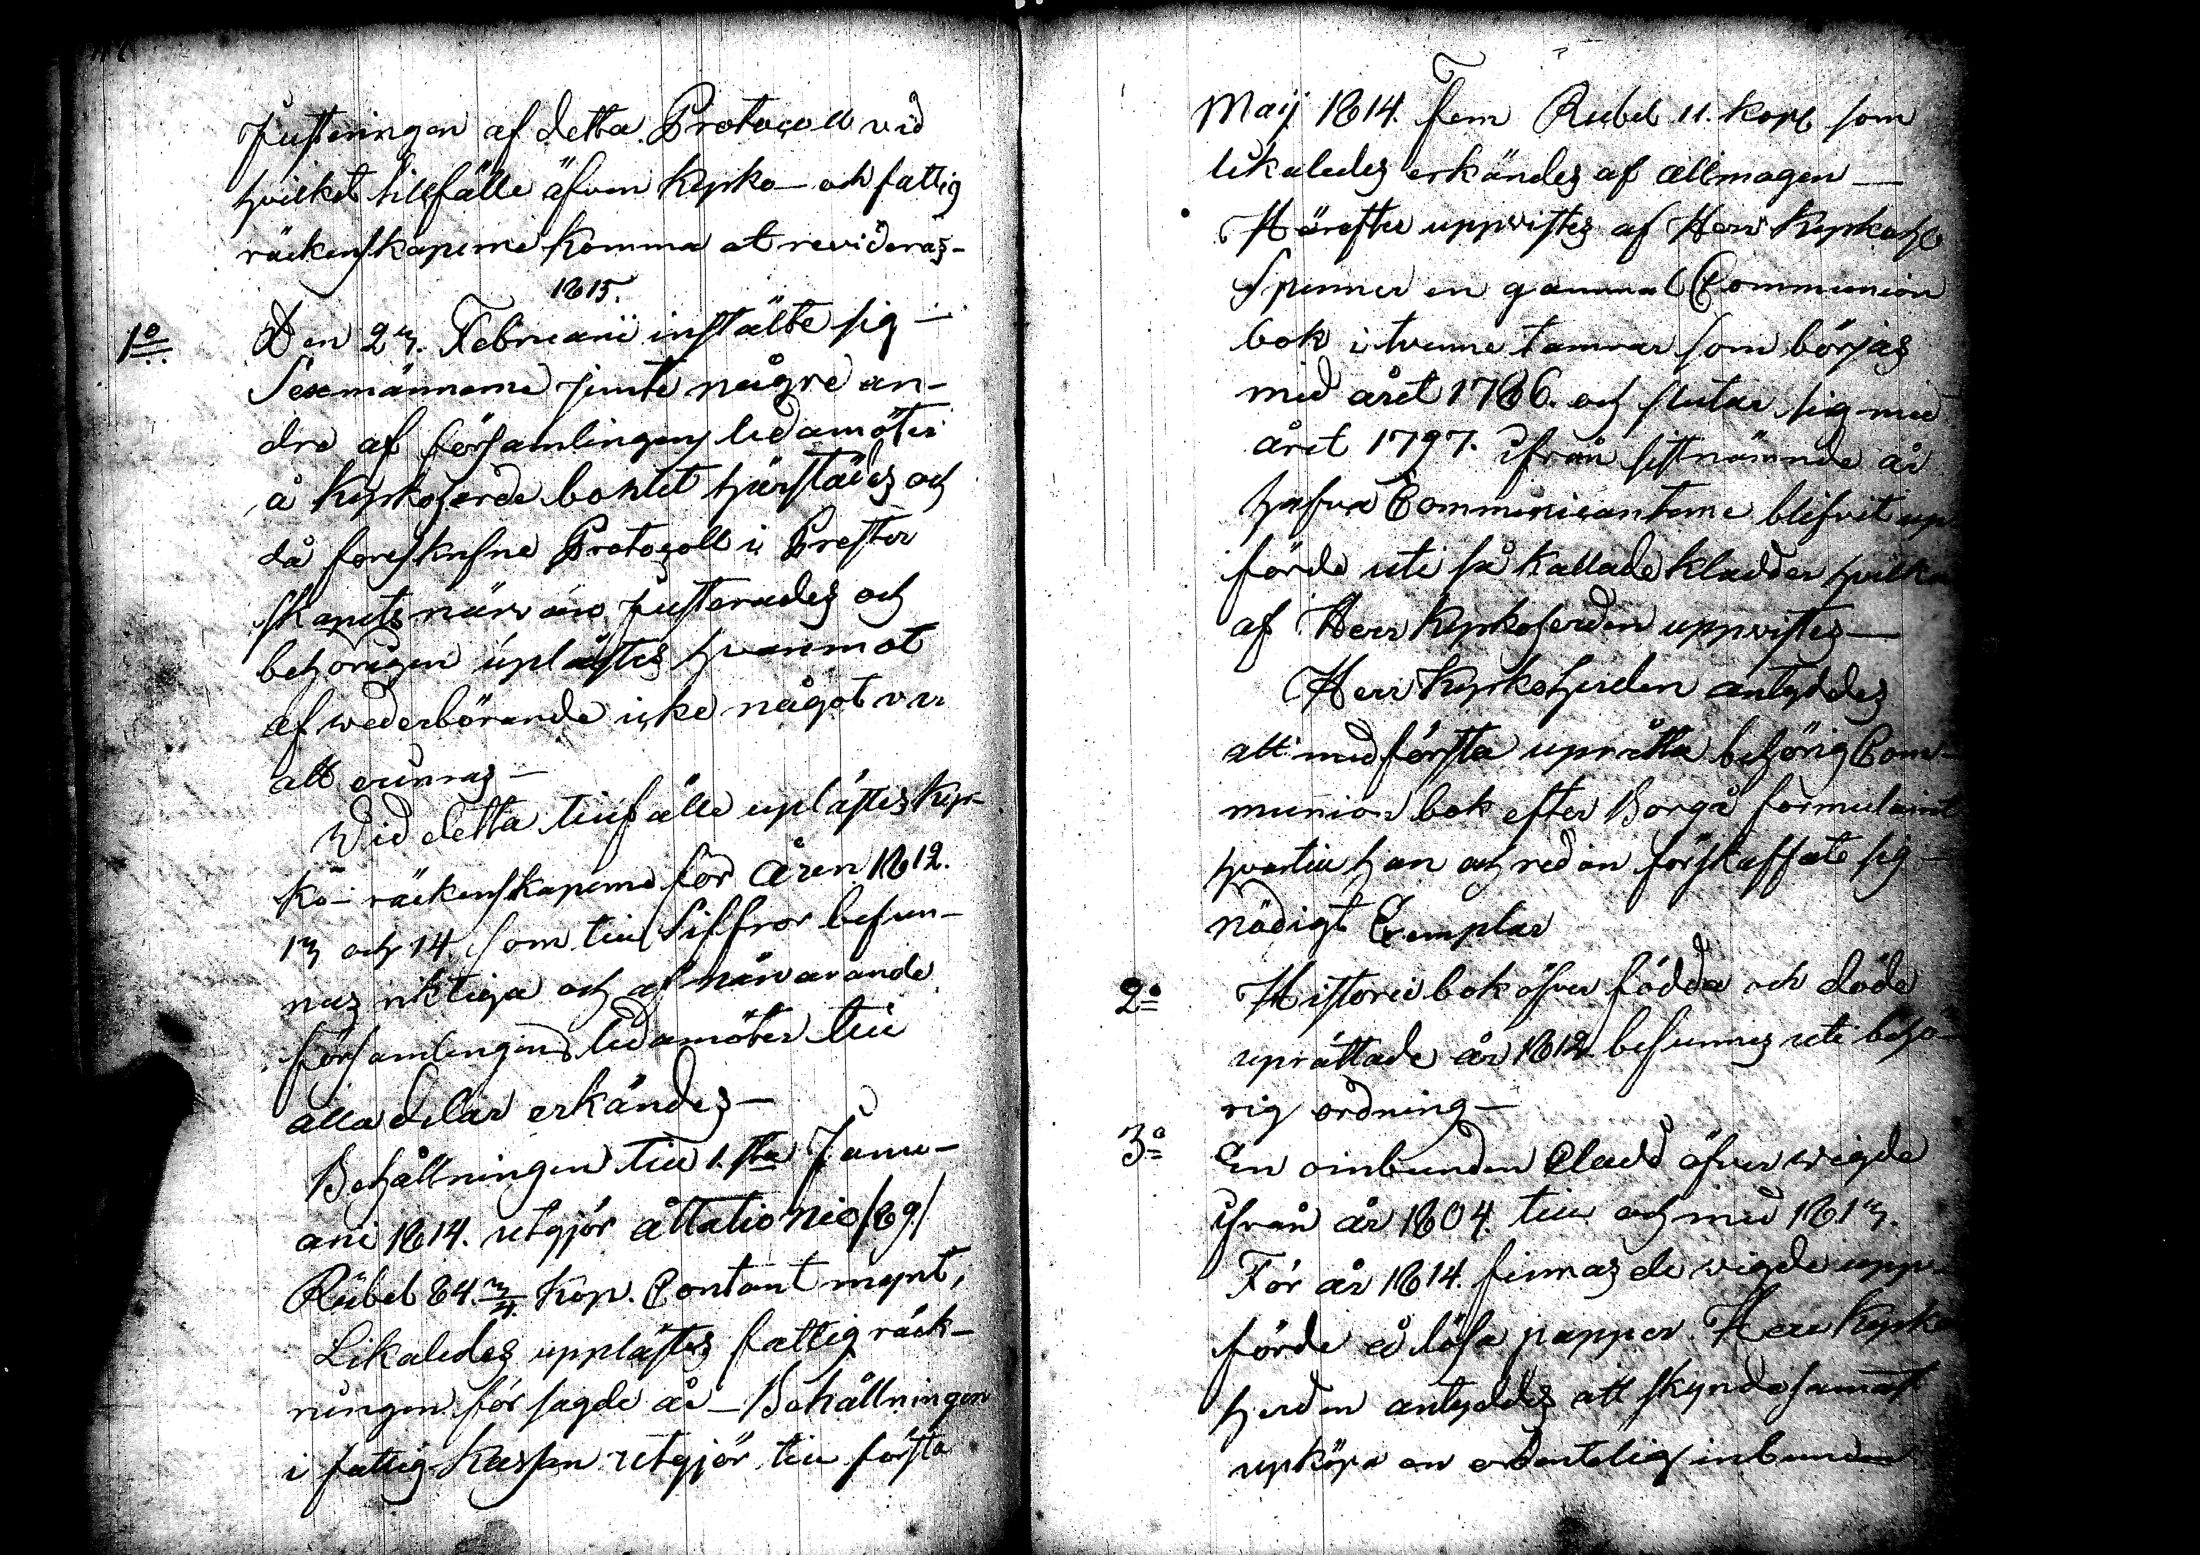 Justeringen af detta Protocoll vid
hvilket tillfälle äfven kyrko- och fattig
räckenskaperne komma at revideras-
1815.
1o Den 23. Februarii instälte sig
Sexmännerne jemte någre an-
dre af församlingens ledamöter
å kyrkoherde bohlet härstädes och
då föreskrefne Protocoll i Prester
skapets närvaro justerades och
behörigen uplästes hvaremot
af wederbörande icke något var
att erinras-
Vid detta tillfälle uplästes kyr-
ko-räckenskaperne för åren 1812.
13 och 14. som till Siffror befun-
nes riktiga och af närvarande
församlingens ledamöter till
alla delar erkändes-
Behållningen till 1.sta Janu-
arii 1814. utgjör åttatio nio /89/
Rubel 84.3/4 kop. Contant mynt,
Likaledes upplästes fattig räck-
ningen för sagde år - Behållningen
i fattig-kassan utgjör till första
Maij 1814. Fem Rubel 11. kop. som
likaledes erkändes af allmogen-
Härefter uppvistes af Herr Kyrkoh
en gammal Communion
bok i tvenne som börjas
med året 1786. och slutar sig med
året 1797. ifrån sistnämnde år
hafva Communicanterne blifvit up
förde uti så kallade kladder hvilka
af Herr Kyrkoherden uppvistes-
Herr Kyrkoherden antyddes
att med första uprätta behörig Com-
munion bok efter Borgå formulairet
hvartill han och redan förskaffat sig-
nödigt Exemplar
2o Historiebok öfver födda och döde
uprättade år 1812 befunnes uti behö-
rig ordning-
3o En oinbunden Cladd öfver wigde
ifrån år 1804. till och med 1813.
För år 1814. finnas de wigde upp-
förde å lösa papper. Herr Kyrko
herden antyddes att skyndesamast
upköpa en ordentelig inbunden